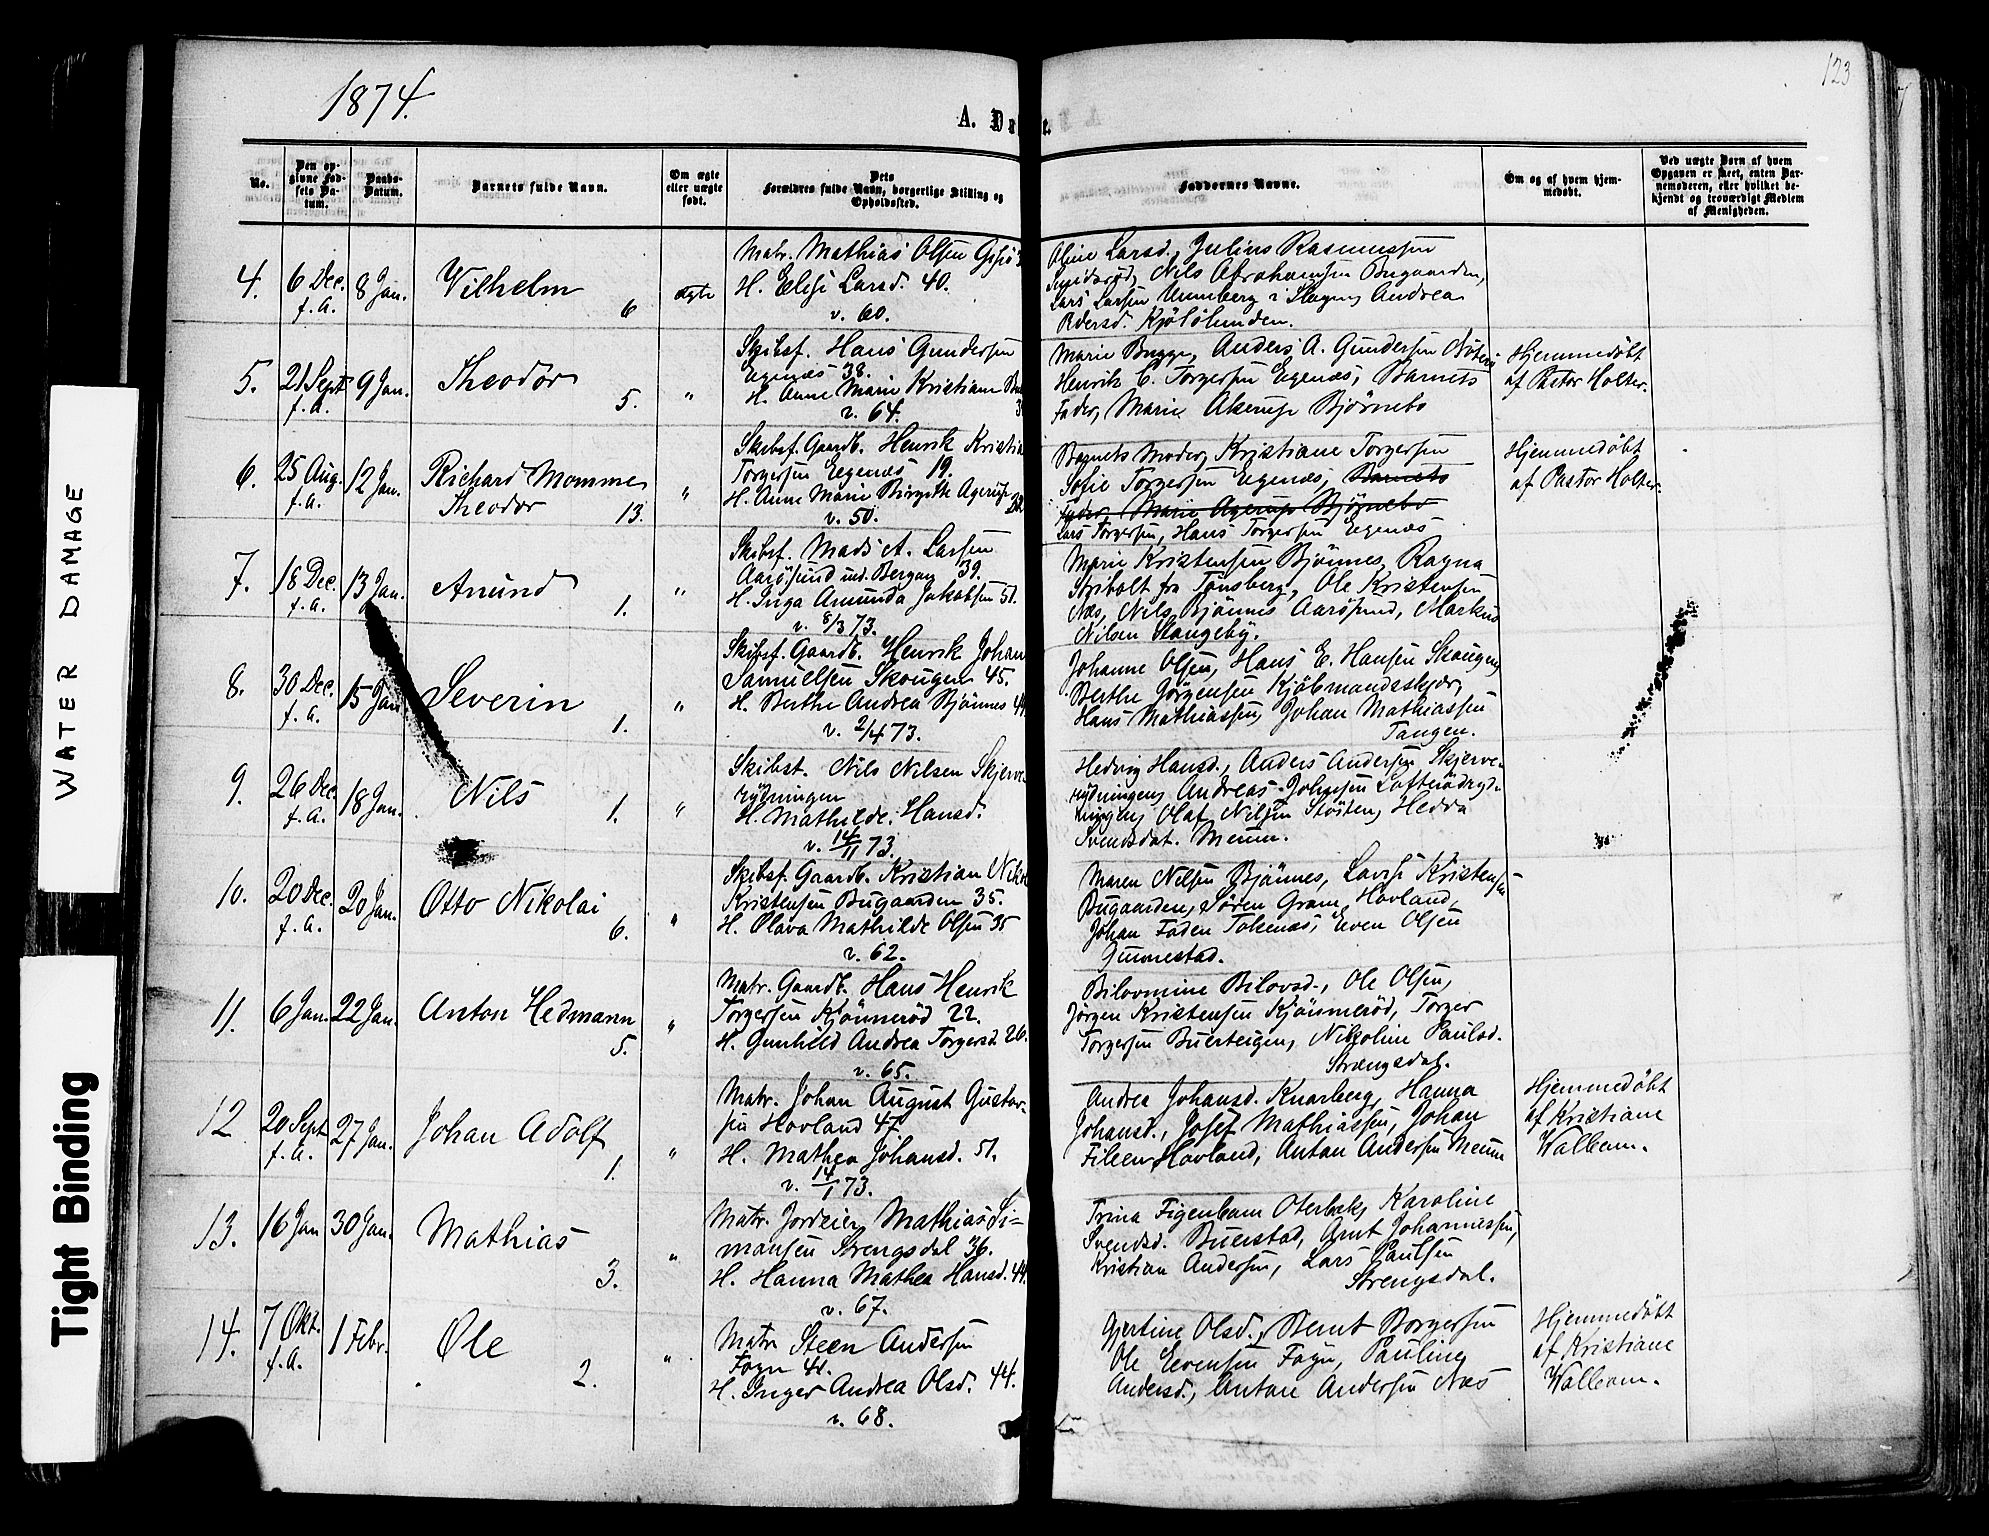 1874.
123
A. D
t.
No.
Den op-
givne Fød-
sels Da-
tum.
Daabs-
Datum.
Barnets fulde Navn.
Om ægte
eller uægte
født.
Dets
Forældres fulde Navn, borgerlige Stilling og
Opholdssted.
Faddernes Navne.
Om og af hvem hjem-
medøbt.
Ved uægte Børn af hvem
Opgaven er skeet, enten Bar-
nemoderen, eller hvilket be-
kjendt og troværdigt Medlem
af Menigheden.
4.
6 Dec.
f. A.
8 Jan.
Vilhelm
6
ægte
Matr. Mathias Olsen
H. Elise Larsd. 40.
v. 60.
Oline Larsd., Julius Rasmussen
Nils Abrahamsen Bugaarden,
Lars Larsen Unneberg i Slagen, Andrea
Pedersd. Kjølölunden.
5.
21 Sept
f. A.
9 Jan.
Theodor
5.
"
Skibsf. Hans Gundersen
Eegenæs 38.
H. Anne Marie Kristiane
v. 64.
Marie Bugge, Anders A. Gundersen
Henrik C. Torgersen Eegenæs, Barnets
Fader, Marie Akerup Bjørnebo
Hjemmedøbt
af Pastor Holter.
6.
25 Aug.
f. A.
12 Jan.
Richard Momme
Theodor
13.
"
Skibsf. Gaardb. Henrik Kristia
Torgersen Eegenæs 19.
H. Anne Marie Birgitte Agerup
v. 50.
Barnets Moder, Kristiane Torgersen
Sofie Torgersen Eegenæs, Barnets
Fader, Marie Agerup Bjørnebo
Lars Torgersen, Hans Torgersen Eegenæs
Hjemmedøbt
af Pastor Holter.
7.
18 Dec.
f. A.
13 Jan.
Anund
1.
"
Skibsf. Mads A. Larsen
Aarösund ind. Bergan 39.
H. Inga Amunda Jakobsen 51.
v. 8/3 73.
Marie Kristensen Bjönnes, Ragna
fra Tønsberg, Ole Kristensen
Næs, Nils Bjönnes Aarösund, Markus
Nilsen Stangeby.
8.
30 Dec.
f. A.
15 Jan
Severin
1.
"
Skibsf. Gaardb. Henrik Johan
Samuelsen Skougen 45.
H. Berthe Andrea Bjönnes 44.
v. 2/4 73.
Johanne Olsen, Hans E. Hansen Skougen,
Berthe Jörgensen Kjöbmandsskjær,
Hans Mathiassen, Johan Mathiassen
Tangen.
9.
26 Dec.
f. A.
18 Jan.
Nils
1.
"
Skibst. Nils Nilsen Skjerve-
rydningen
H. Mathilde Hansd.
v. 14/11 73.
Hedvig Hansd., Anders Andersen Skjerve-
rydningen, Andreas Johnsen Loftsrödryd-
ningen, Olaf Nilsen Stösten, Hedda
Svendsdat. Meum.
10.
20 Dec.
f. A.
20 Jan.
Otto Nikolai
6.
"
Skibsf. Gaardb. Kristian Niko
Kristensen Bugaarden 35.
H. Olava Mathilde Olsen 35
v. 62.
Maren Nilsen Bjönnes, Lovise Kristensen
Bugaarden, Sören Gram, Hovland,
Johan Faden Tokenæs, Even Olsen
Gunnestad.
11.
6 Jan.
22 Jan.
Anton Hedmann
5.
"
Matr. Gaardb. Hans Henrik
Torgersen Kjönnerød 22.
H. Gunhild Andrea Torgersd. 26.
v. 65.
Bilovmine Bilovsd., Ole Olsen,
Jörgen Kristensen Kjönnerød, Torger
Torgersen Buersteigen, Nikoline Paulsd.
Strængsdal.
12
20 Sept
f. A.
27 Jan.
Johan Adolf
1.
"
Matr. Johan August Gustav-
sen Hovland 47
H. Mathea Johansd. 51.
v. 14/1 73.
Andrea Johansd. Knarberg, Hanna
Johansd., Josef Mathiassen, Johan
Fileen Hovland, Anton Andersen Meum
Hjemmedøbt
af Kristiane
Walleom.
13.
16 Jan
30 Jan.
Mathias
3.
"
Matr. Jordeier Mathias Si-
monsen Strengsdal 36.
H. Hanna Mathea Hansd. 44.
v. 67.
Trina Figenbam Oterbæk, Karoline
Svendsd. Buerstad, Arnt Johannessen,
Kristian Andersen, Lars Paulsen
Strengsdal.
14.
7 Okt.
f. A.
1 Febr.
Ole
2.
"
Matr. Steen Andersen
Fogn 41.
H. Inger Andrea Olsd. 44.
v. 68.
Gjertine Olsd., Bernt Borgersen
Ole Evensen Fogn, Pauline
Andersd., Anton Andersen Næs
Hjemmedøbt
af Kristiane
Walleom.
WATER DAMAGE
Tight Binding